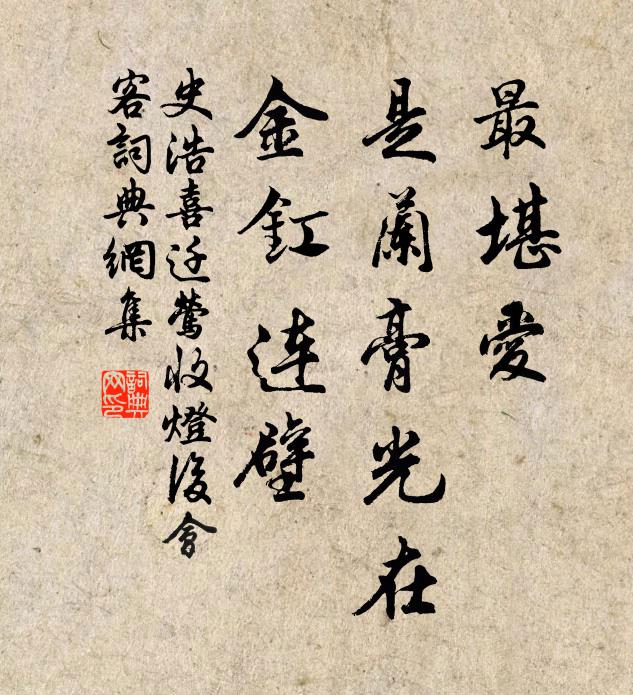 最堪愛
是蘭膏光在
金釭连壁
史浩喜迁鶯收燈後會
客詞典網集
詞典網印